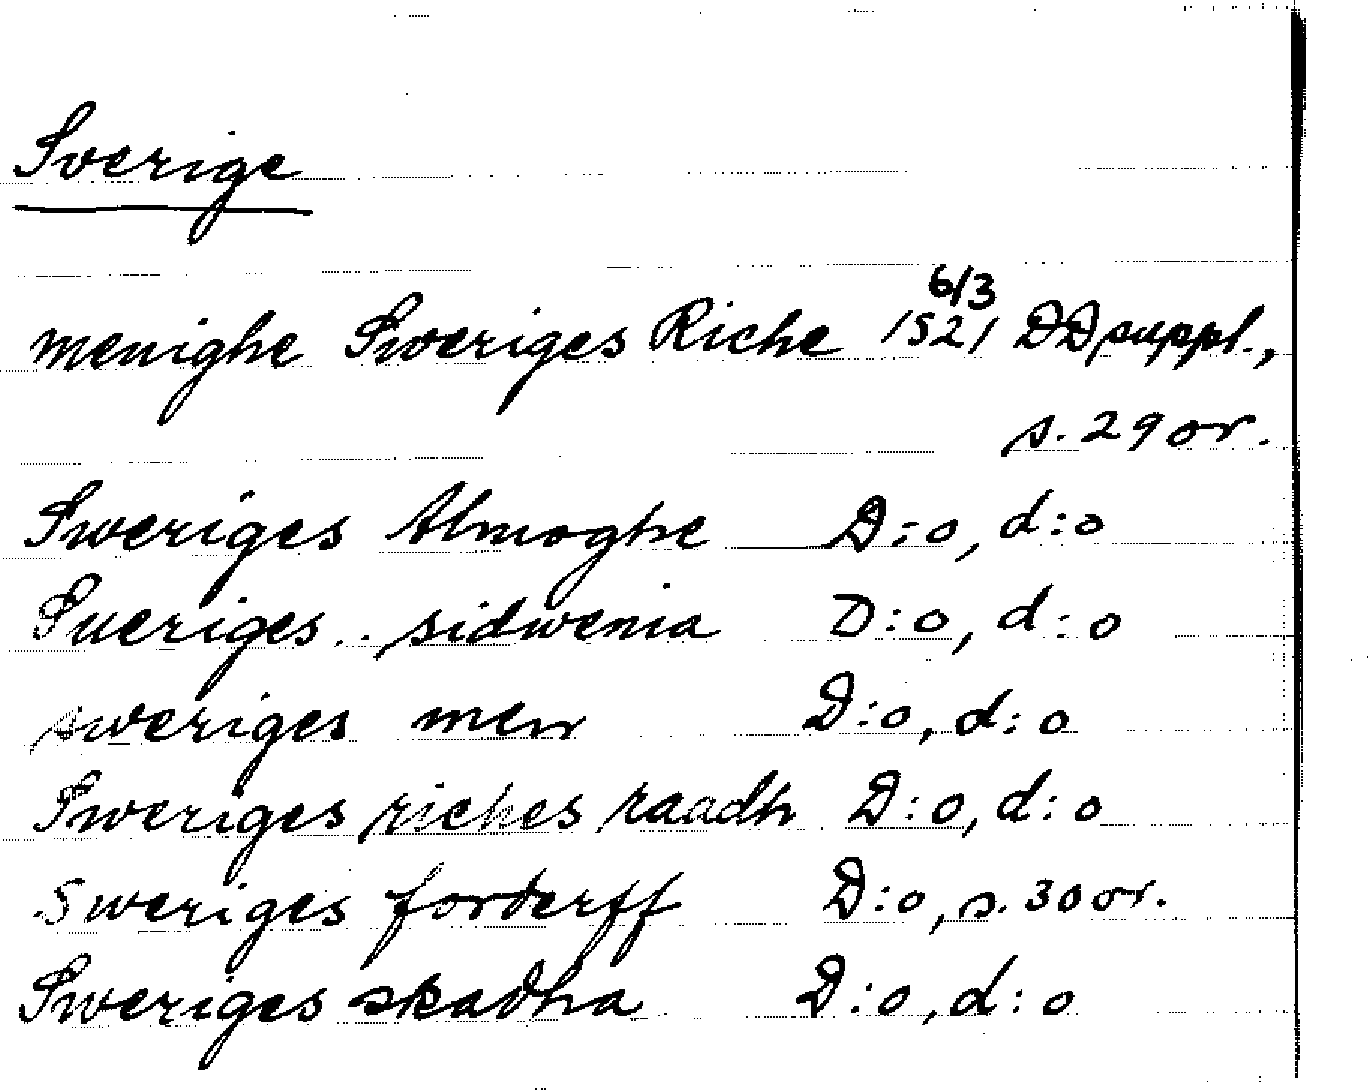 Sverige
menighe Sweriges Riche 1521 6/3 DD suppl.,
s. 29 or.
Sweriges Almoghe D:o, d:o
Sueriges .. sidwenia D:o, d:o
sweriges men D:o, d:o
Sweriges riches raadh D:o, d:o
Sweriges forderff D:o, s. 30 or.
Sweriges skadha D:o, d:o